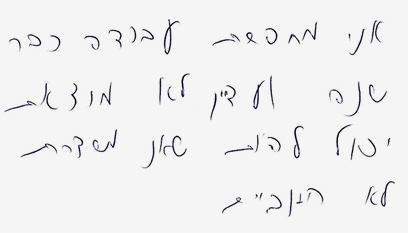 אני מחפשת עבודה כבר
שנה ועדיין לא מוצאת
יכול להיות שאני משדרת
לא